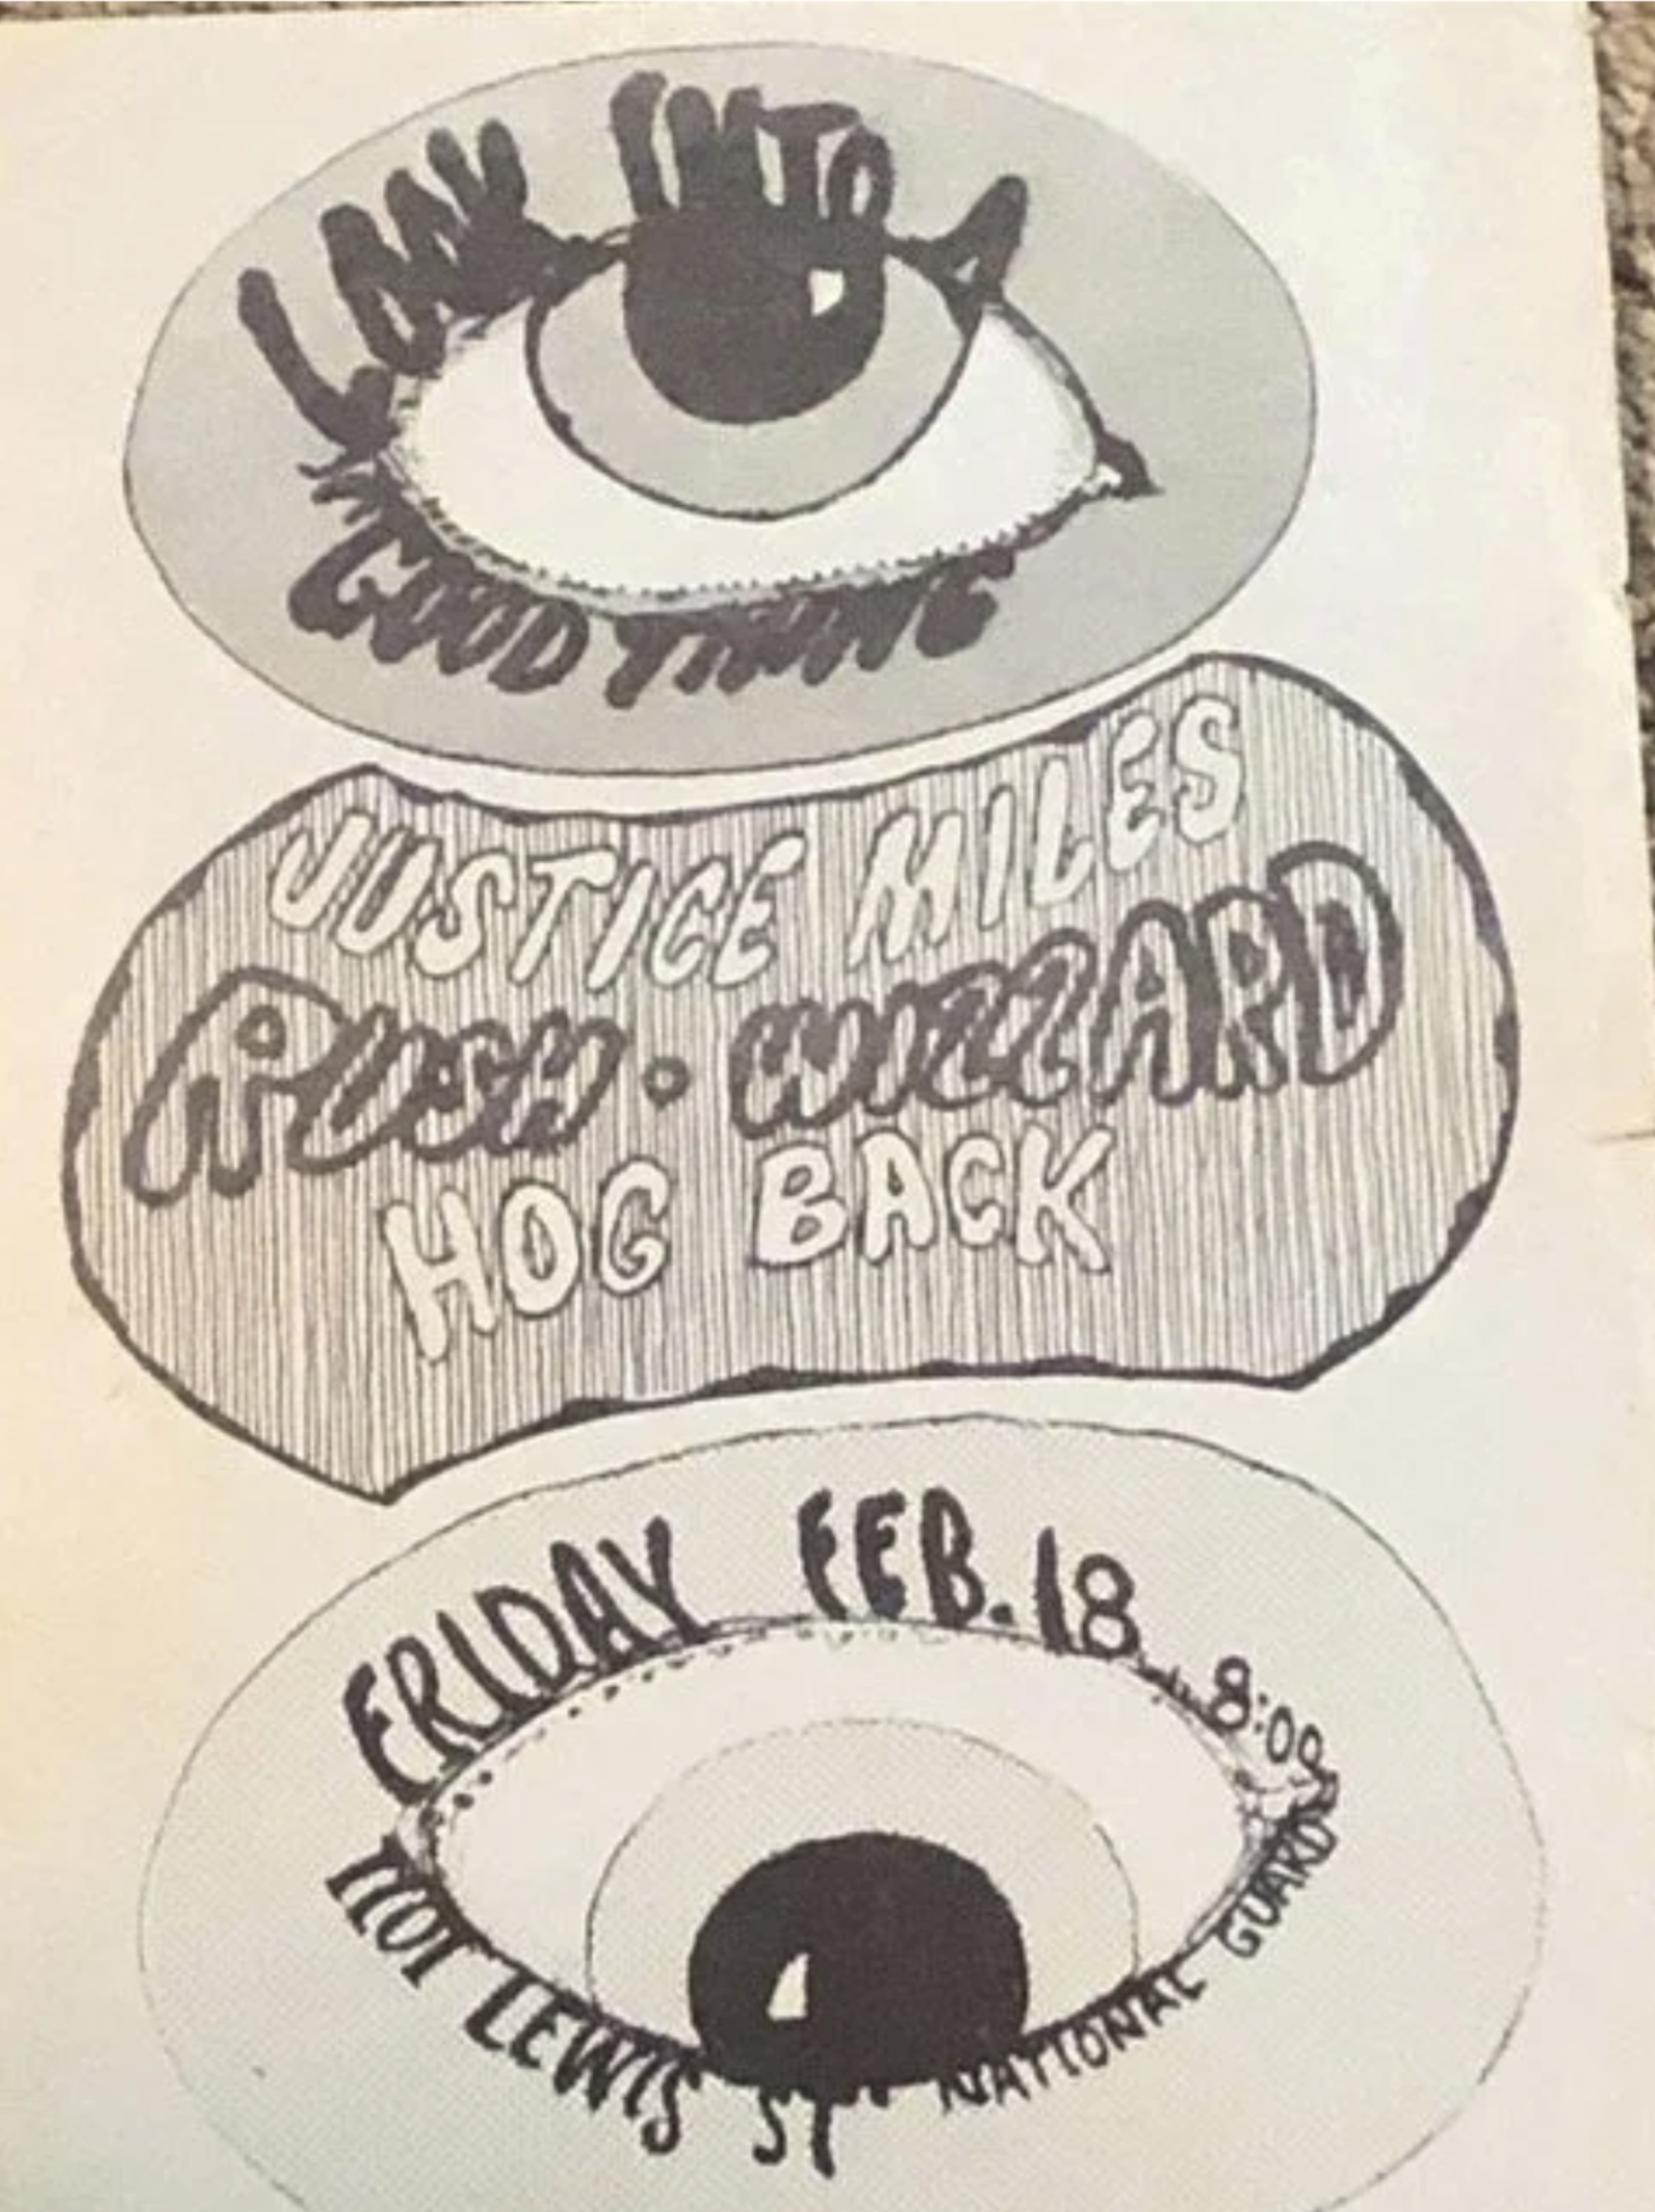 LOOK INTO A
GOOD THING
JUSTICE MILES
RUSH • WIZZARD
HOG BACK
FRIDAY FEB. 18 8:00
1101 LEWIS ST NATIONAL GUARD